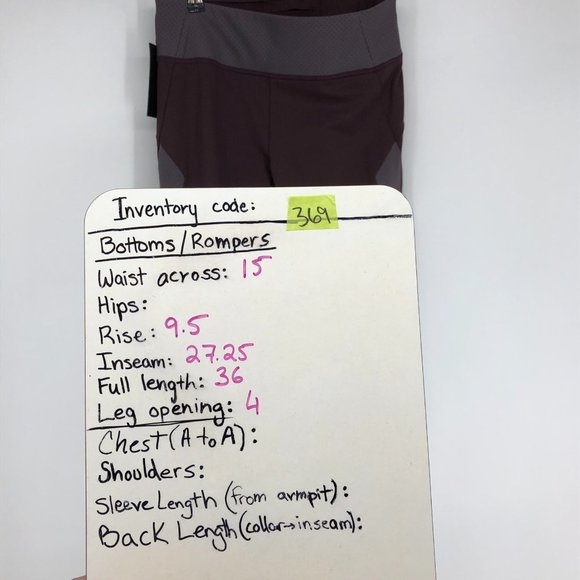 Inventory code: 369
Bottoms/Rompers
Waist across: 15
Hips:
Rise: 9.5
Inseam: 27.25
Full length: 36
Leg opening: 4
Chest (A to A):
Shoulders:
Sleeve Length (from armpit):
Back Length (collar→inseam):